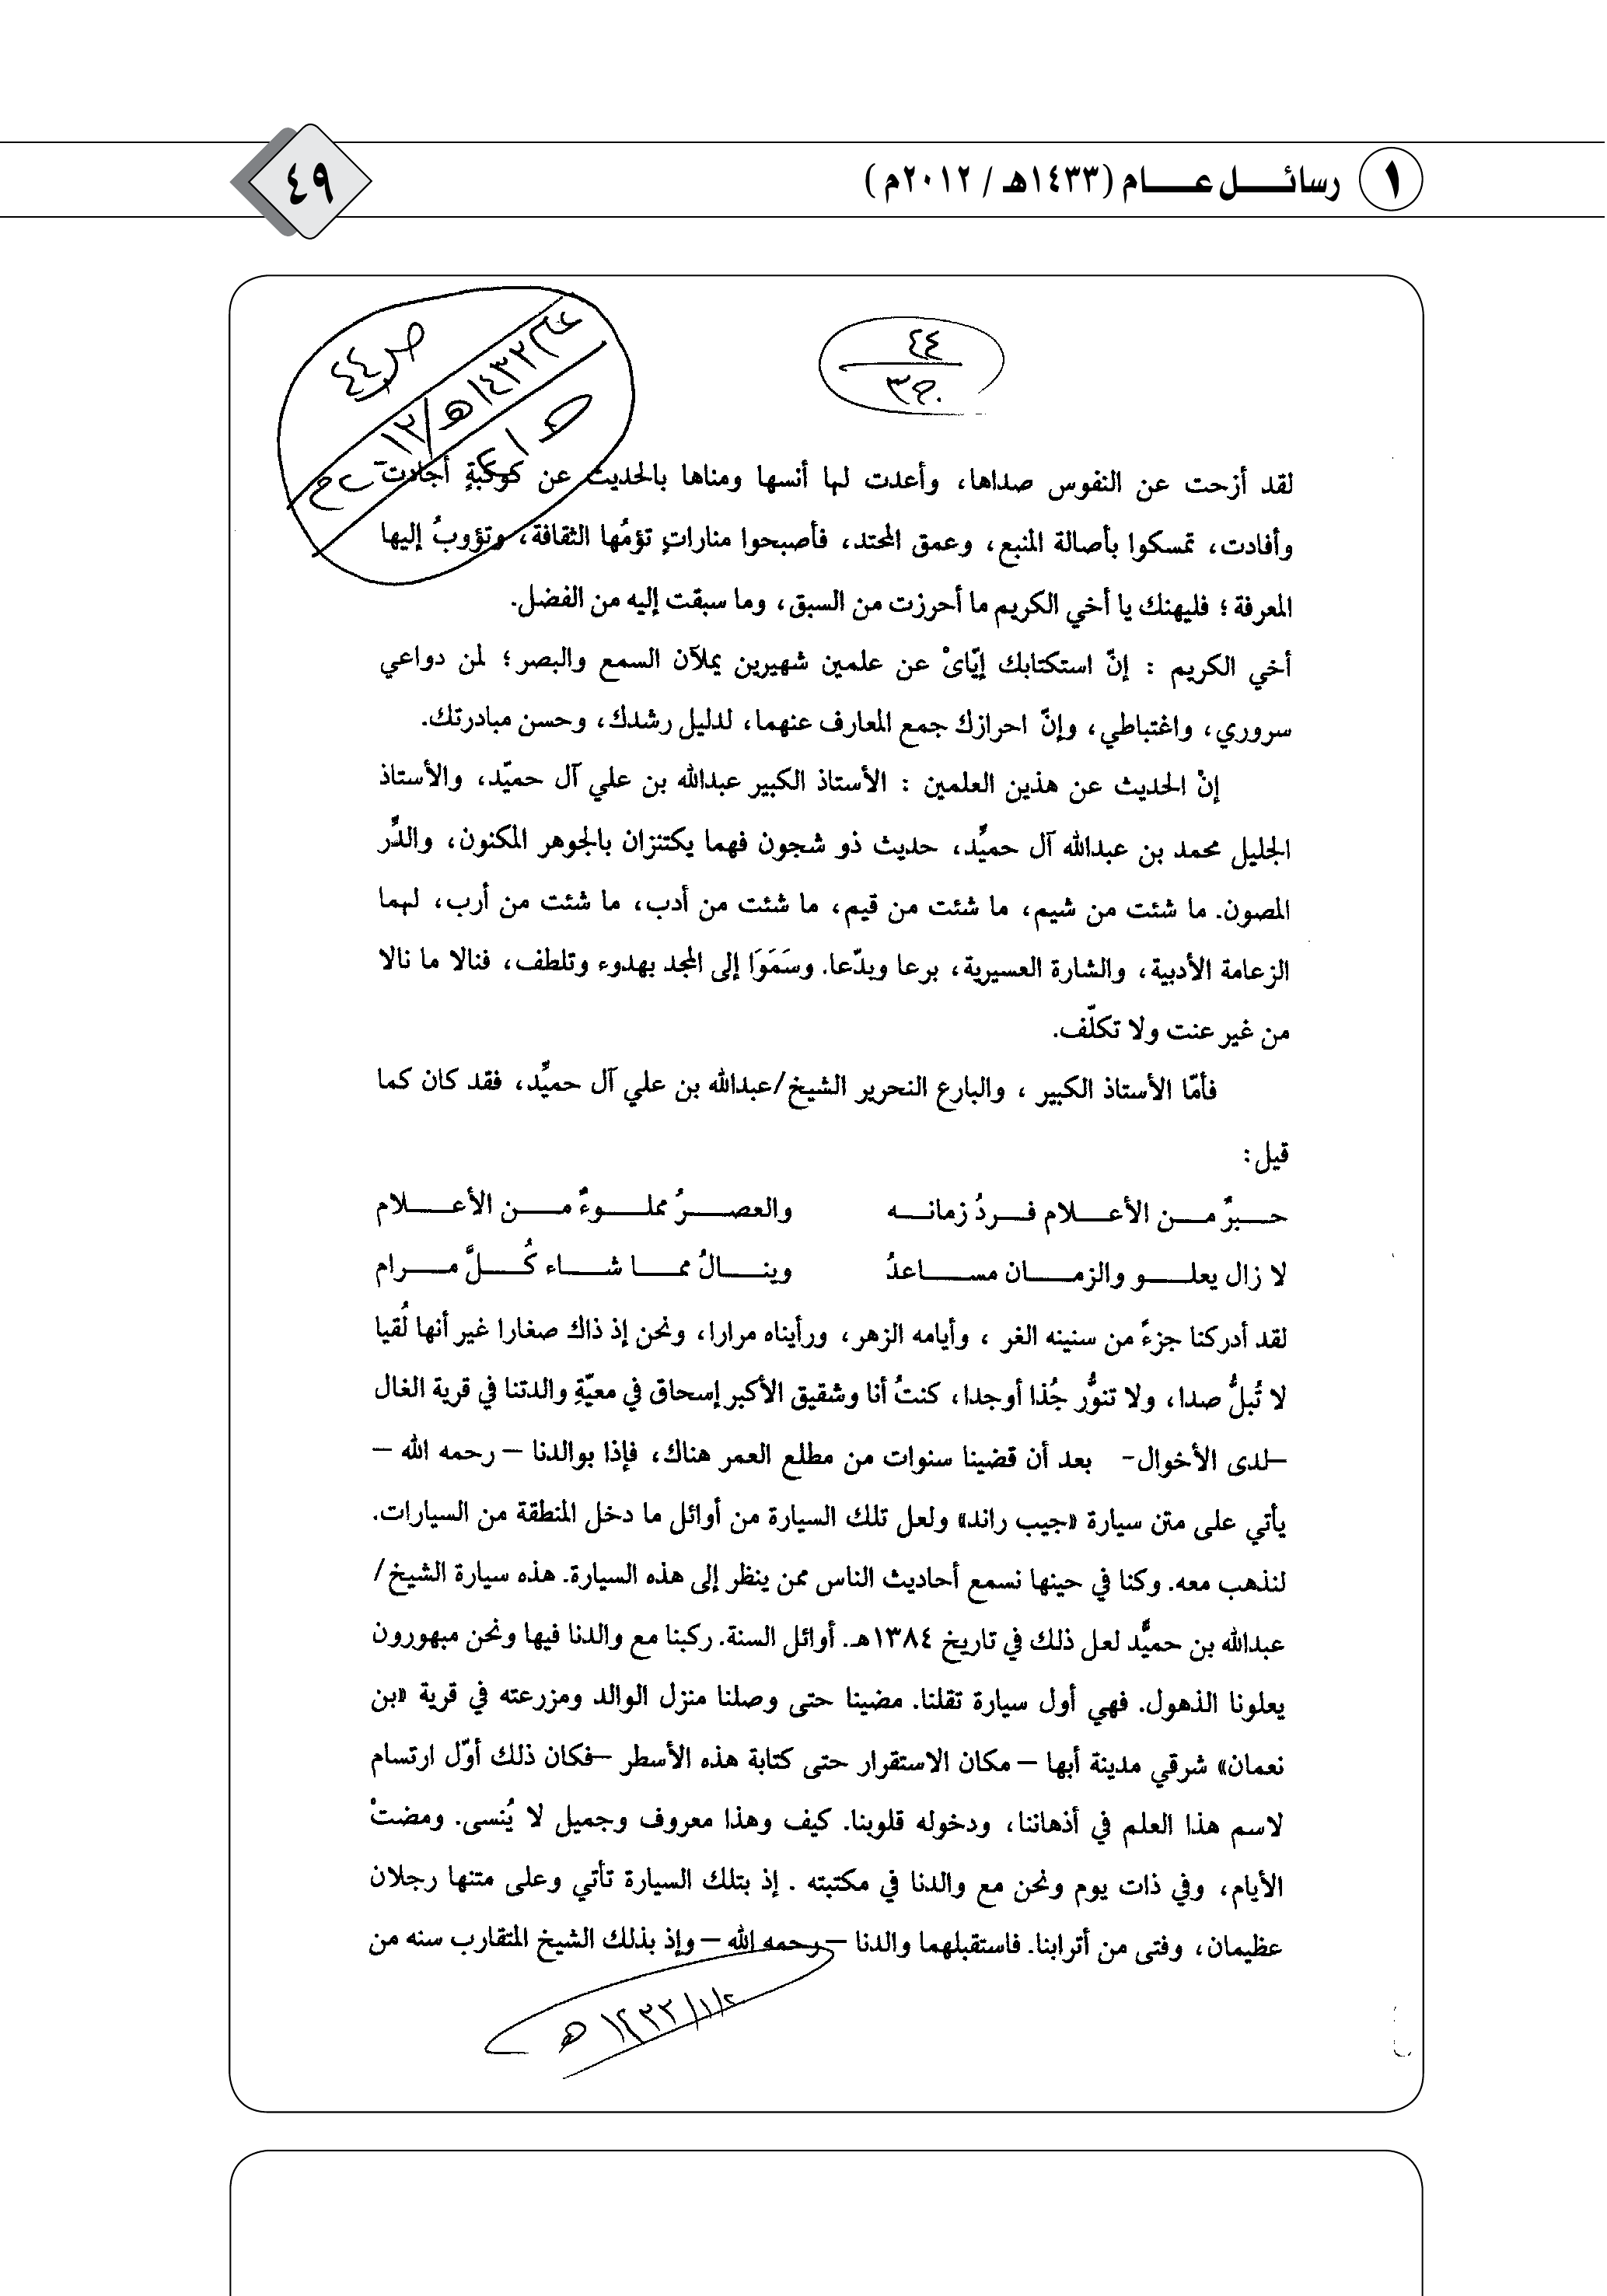 ١ رسائل عام (١٤٣٣هـ / ٢٠١٢م)
٤٩
٤٤
ج٣
ص٤٤
لقد أزحت عن النفوس صداها، وأعدت لها أنسها ومناها بالحديث عن كوكبةٍ أجادت
وأفادت، تمسكوا بأصالة المنبع، وعمق المحتد، فأصبحوا مناراتٍ تؤمُها الثقافة، وتؤوبُ إليها
المعرفة؛ فليهنك يا أخي الكريم ما أحرزت من السبق، وما سبقت إليه من الفضل.
أخي الكريم : إنّ استكتابك إيّاىْ عن علمين شهيرين يملآن السمع والبصر؛ لمن دواعي
سروري، واغتباطي، وإنّ احرازك جمع المعارف عنهما، لدليل رشدك، وحسن مبادرتك.
إنْ الحديث عن هذين العلمين : الأستاذ الكبير عبدالله بن علي آل حميّد، والأستاذ
الجليل محمد بن عبدالله آل حميِّد، حديث ذو شجون فهما يكتنزان بالجوهر المكنون، والدِّر
المصون. ما شئت من شيم، ما شئت من قيم، ما شئت من أدب، ما شئت من أرب، لهما
الزعامة الأدبية، والشارة العسيرية، برعا وبدّعا. وسَمَوَا إلى المجد بهدوء وتلطف، فنالا ما نالا
من غير عنت ولا تكلّف.
فأمّا الأستاذ الكبير ، والبارع النحرير الشيخ/عبدالله بن علي آل حميِّد، فقد كان كما
قيل:
حبرٌ من الأعلام فردُ زمانه والعصرُ مملوءٌ من الأعلام
لا زال يعلو والزمان مساعدُ وينالُ مما شاء كُلَّ مرام
لقد أدركنا جزءً من سنينه الغر ، وأيامه الزهر، ورأيناه مرارا، ونحن إذ ذاك صغارا غير أنها لُقيا
لا تُبلُّ صدا، ولا تنوُّر جُذا أوجدا، كنتُ أنا وشقيق الأكبر إسحاق في معيّةِ والدتنا في قرية الغال
–لدى الأخوال- بعد أن قضينا سنوات من مطلع العمر هناك، فإذا بوالدنا – رحمه الله –
يأتي على متن سيارة «جيب راند» ولعل تلك السيارة من أوائل ما دخل المنطقة من السيارات.
لنذهب معه. وكنا في حينها نسمع أحاديث الناس ممن ينظر إلى هذه السيارة. هذه سيارة الشيخ/
عبدالله بن حميِّد لعل ذلك في تاريخ ١٣٨٤هـ. أوائل السنة. ركبنا مع والدنا فيها ونحن مبهورون
يعلونا الذهول. فهي أول سيارة تقلنا. مضينا حتى وصلنا منزل الوالد ومزرعته في قرية «بن
نعمان» شرقي مدينة أبها – مكان الاستقرار حتى كتابة هذه الأسطر –فكان ذلك أوّل ارتسام
لاسم هذا العلم في أذهاننا، ودخوله قلوبنا. كيف وهذا معروف وجميل لا يُنسى. ومضتْ
الأيام، وفي ذات يوم ونحن مع والدنا في مكتبته . إذ بتلك السيارة تأتي وعلى متنها رجلان
عظيمان، وفتى من أترابنا. فاستقبلهما والدنا – رحمه الله – وإذ بذلك الشيخ المتقارب سنه من